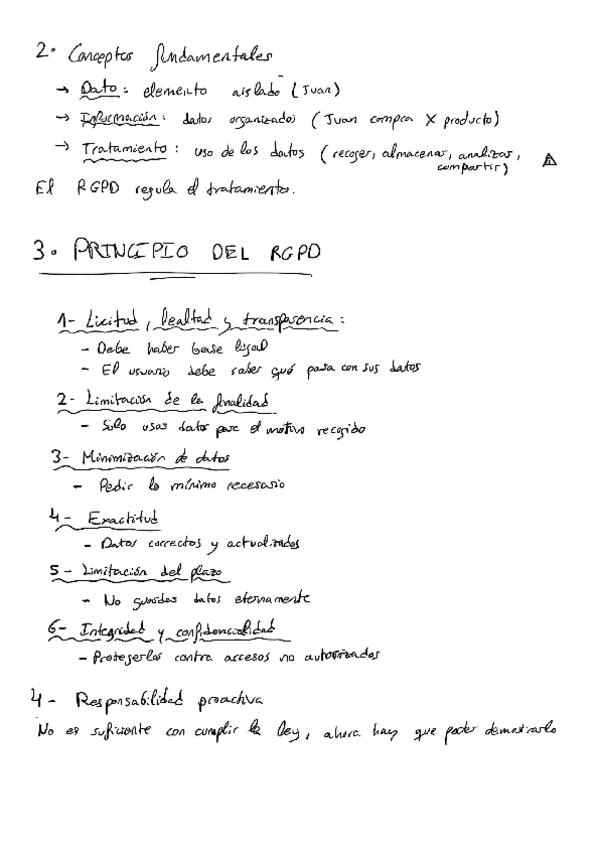 2. Conceptos fundamentales
→ Dato: elemento aislado (Juan)
→ Información: datos organizados (Juan compra X producto)
→ Tratamiento: uso de los datos (recoger, almacenar, analizar, compartir)
El RGPD regula el tratamiento.
3. PRINCIPIO DEL RGPD
1- Licitud, lealtad y transparencia:
- Debe haber base legal
- El usuario debe saber qué pasa con sus datos
2- Limitación de la finalidad
- Solo usas datos para el motivo recogido
3- Minimización de datos
- Pedir lo mínimo necesario
4- Exactitud
- Datos correctos y actualizados
5- Limitación del plazo
- No guardes datos eternamente
6- Integridad y confidencialidad
- Protegerlos contra accesos no autorizados
4- Responsabilidad proactiva
No es suficiente con cumplir la ley, ahora hay que poder demostrarlo